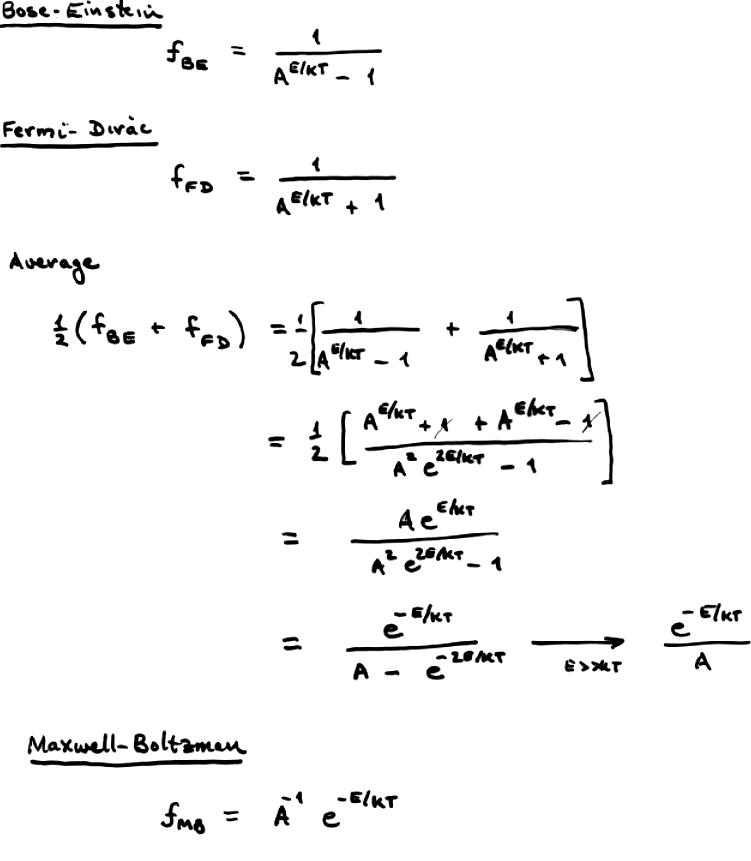 Bose-Einstein
f_BE = 1 / (A^{E/KT} - 1)
Fermi-Dirac
f_FD = 1 / (A^{E/KT} + 1)
Average
1/2 (f_BE + f_FD) = 1/2 [ 1 / (A^{E/KT} - 1) + 1 / (A^{E/KT} + 1) ]
= 1/2 [ (A^{E/KT} + 1 + A^{E/KT} - 1) / (A^2 e^{2E/KT} - 1) ]
= A e^{E/KT} / (A^2 e^{2E/KT} - 1)
= e^{-E/KT} / (A - e^{-2E/KT}) ⟶ E>>KT e^{-E/KT} / A
Maxwell-Boltzman
f_MB = A^{-1} e^{-E/KT}